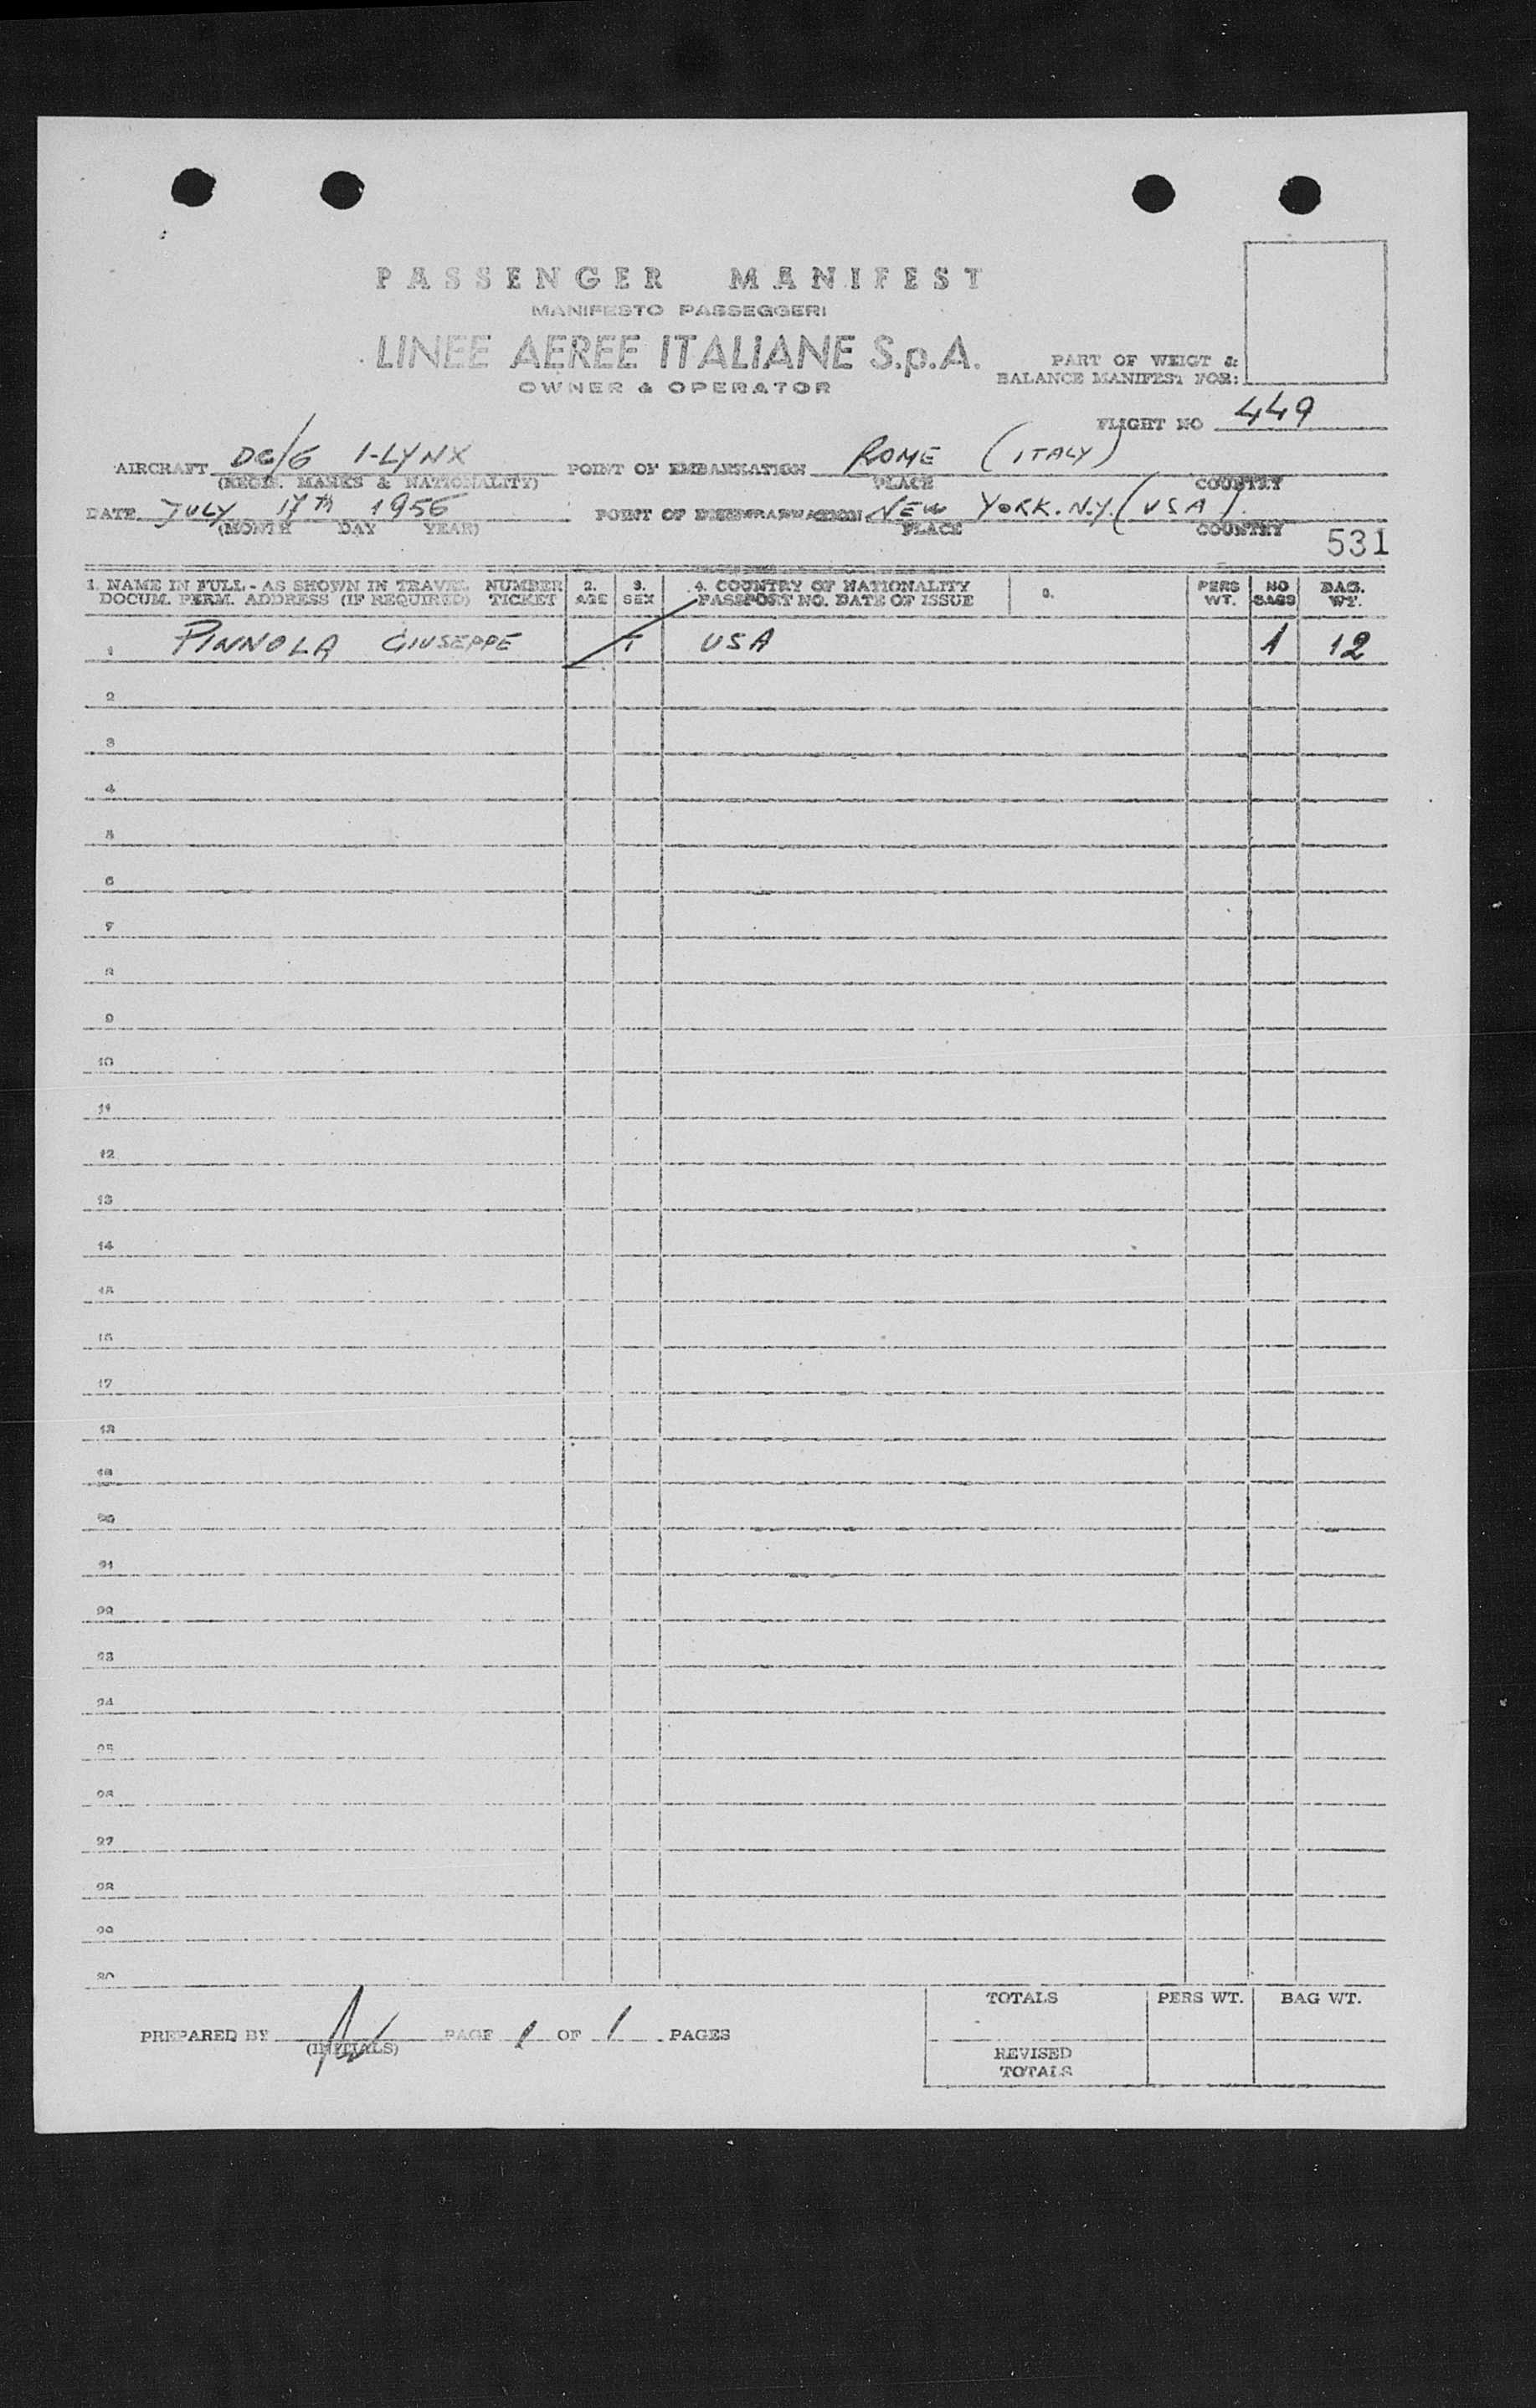 PASSENGER MANIFEST
MANIFESTO PASSEGGERI
LINEE AEREE ITALIANE S.p.A.
OWNER & OPERATOR
PART OF WEIGT &
BALANCE MANIFEST FOR:
FLIGHT NO 449
AIRCRAFT DC/6 I-LYNX POINT OF EMBARKATION ROME (ITALY)
(REGIS. MARKS & NATIONALITY) PLACE COUNTRY
DATE JULY 17th 1956 POINT OF NEW YORK. N.Y. (USA).
(MONTH DAY YEAR) PLACE COUNTRY
531
1. NAME IN FULL - AS SHOWN IN TRAVEL NUMBER 2. 3. 4. COUNTRY OF NATIONALITY PERS NO BAG.
DOCUM. PERM. ADDRESS (IF REQUIRED) TICKET AGE SEX PASSPORT NO. DATE OF ISSUE WT. BAGS WT.
1 PINNOLA GIUSEPPE USA 1 12
2
3
4
5
6
7
8
9
10
11
12
13
14
15
16
17
18
19
20
21
22
23
24
25
26
27
28
29
30
TOTALS PERS WT. BAG WT.
PREPARED BY PAGE 1 OF 1 PAGES
(INITIALS)
REVISED
TOTALS